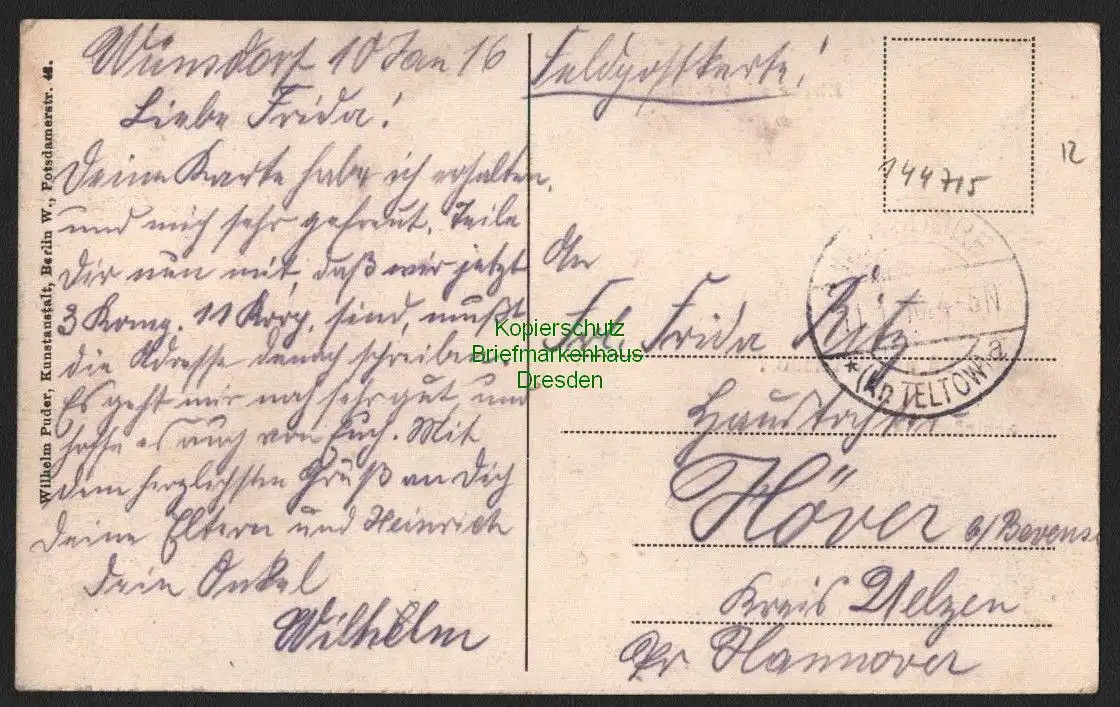 Wünsdorf 10 Jan 16
Liebe Frida!
Deine Karte habe ich erhalten,
und mich sehr gefreut. Teile
Dir nun mit, daß wir jetzt
3 Komp. 11 Korp. sind, mußt
die Adresse danach schreiben.
Es geht mir noch sehr gut, und
hoffe es auch von Euch. Mit
dem herzlichsten Gruß an Dich
deine Eltern und Heinrich
dein Onkel
Wilhelm
Wilhelm Puder, Kunstanstalt, Berlin W., Potsdamerstr. 48.
Feldpostkarte!
144715
12
An
Frl. Frida
Haustochter
Höver b/Bevens
Kreis Uelzen
Pr Hannover
* (Kr. TELTOW) a
Kopierschutz
Briefmarkenhaus
Dresden